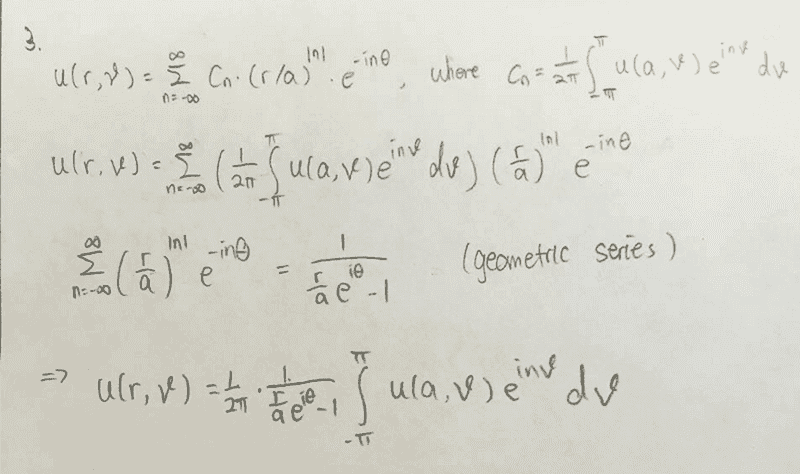 3.
u(r,ϑ) = ∑_{n=-∞}^{∞} C_n · (r/a)^{|n|} · e^{-inθ}, where C_n = \frac{1}{2π} ∫_{-π}^{π} u(a,ϑ) e^{inϑ} dϑ
u(r,ϑ) = ∑_{n=-∞}^{∞} ( \frac{1}{2π} ∫_{-π}^{π} u(a,ϑ) e^{inϑ} dϑ ) ( \frac{r}{a} )^{|n|} e^{-inθ}
∑_{n=-∞}^{∞} ( \frac{r}{a} )^{|n|} e^{-inθ} = \frac{1}{\frac{r}{a} e^{iθ} - 1} (geometric series)
=> u(r,ϑ) = \frac{1}{2π} · \frac{1}{\frac{r}{a} e^{iθ} - 1} ∫_{-π}^{π} u(a,ϑ) e^{inϑ} dϑ